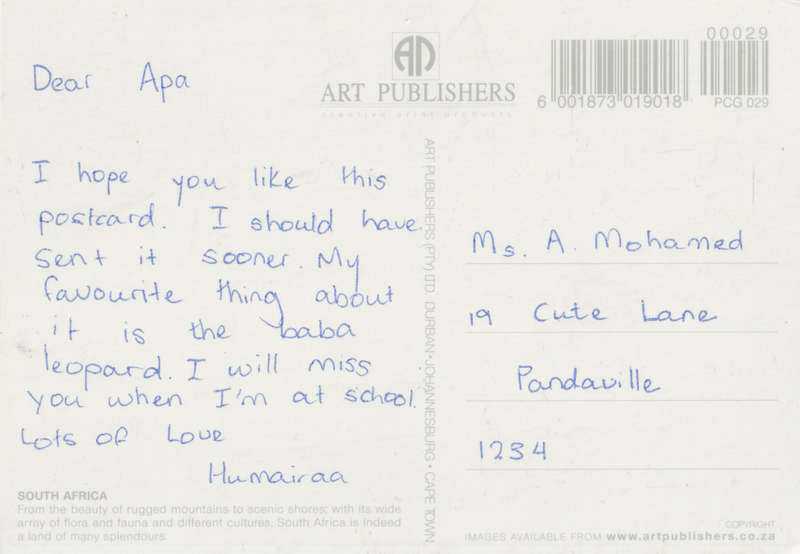 Dear Apa
I hope you like this
postcard. I should have
sent it sooner. My
favourite thing about
it is the baba
leopard. I will miss
you when I'm at school.
Lots of Love
Humairaa
SOUTH AFRICA
From the beauty of rugged mountains to scenic shores; with its wide
array of flora and fauna and different cultures, South Africa is indeed
a land of many splendours
ART PUBLISHERS
creative print products
ART PUBLISHERS (PTY) LTD DURBAN • JOHANNESBURG • CAPE TOWN
00029
6 001873 019018
PCG 029
Ms. A. Mohamed
19 Cute Lane
Pandaville
1234
COPYRIGHT
IMAGES AVAILABLE FROM www.artpublishers.co.za